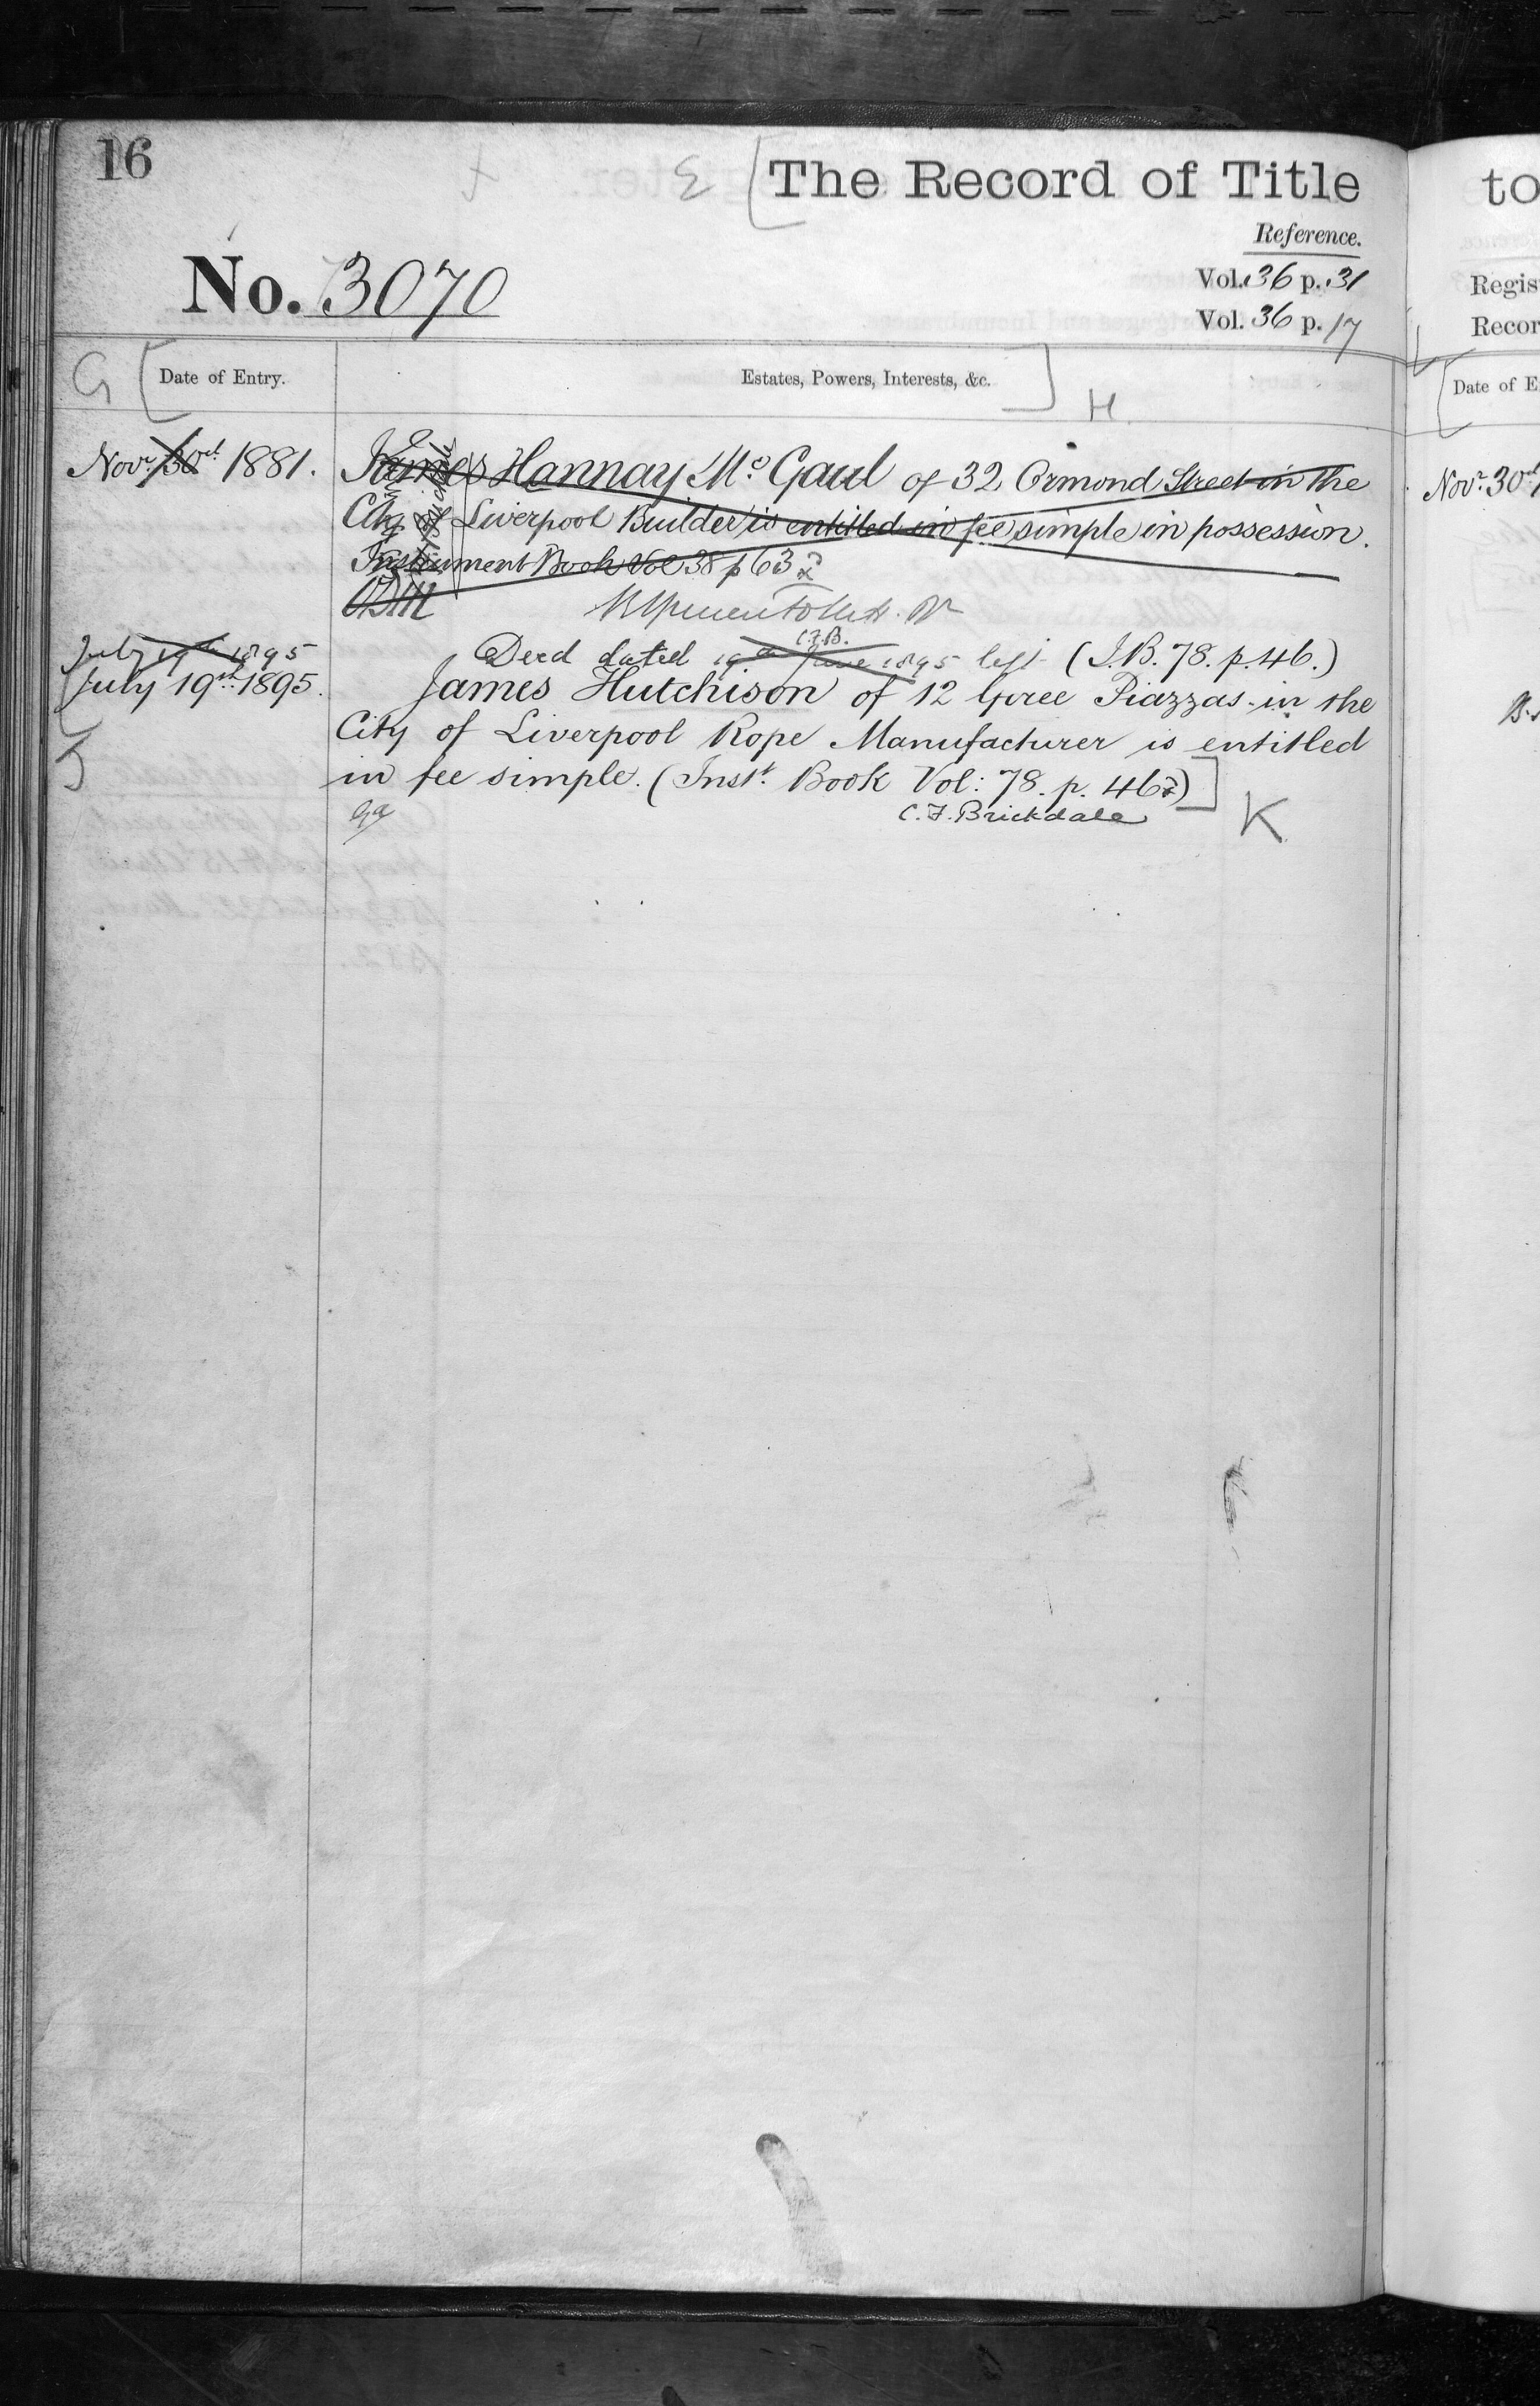 16
The Record of Title
Reference.
No. 3070
Vol. 36 p. 31
Vol. 36 p. 17
G
Date of Entry.
Estates, Powers, Interests, &c.
H
Novr. 30th 1881.
James Hannay Mc Gaul of 32 Ormond Street in the
City of Liverpool Builder is entitled in fee simple in possession.
Instrument Book Vol 38 p 63
July 19th 1895
C.F.B.
Deed dated 19th June 1895 left (I.B. 78. p. 46.)
July 19th 1895.
James Hutchison of 12 Goree Piazzas in the
City of Liverpool Rope Manufacturer is entitled
in fee simple. (Inst. Book Vol: 78. p. 46)
C. F. Brickdale
K
to
Regis
Recor
Date of E
Novr. 30th